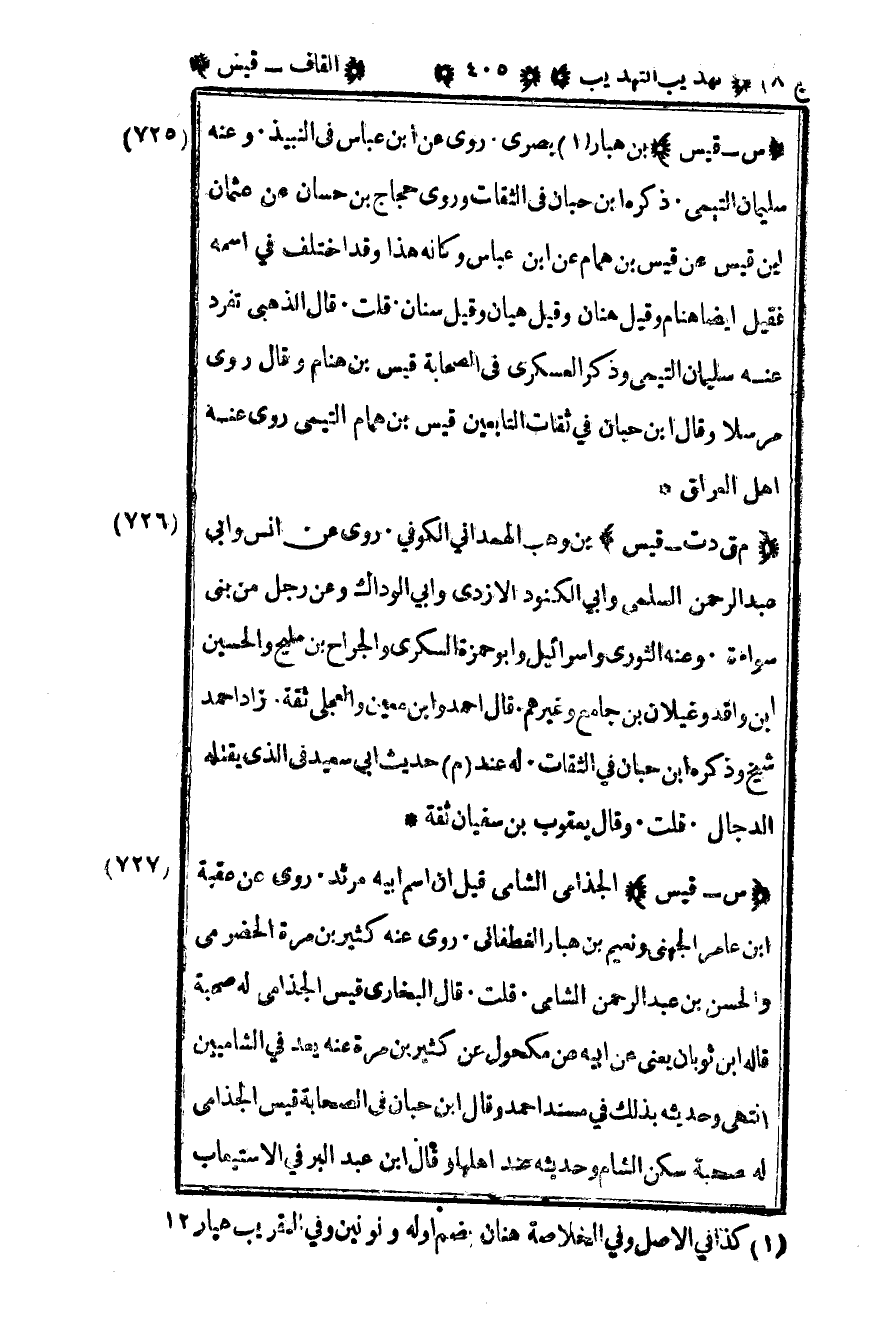 ج ٨ ﴿ تهذيب التهذيب ﴾ ﴿ ٤٠٥ ﴾ ﴿ القاف ــ قيس ﴾
﴿ س ــ قيس ﴾ بن هبار (١) بصرى · روى عن ابن عباس فى النبيذ · وعنه (٧٢٥)
سليمان التيمى · ذكره ابن حبان فى الثقات وروى حجاج بن حسان عن عثمان
ابن قيس عن قيس بن همام عن ابن عباس وكانه هذا وقد اختلف في اسمه
فقيل ايضا هنام وقيل هنان وقيل هيان وقيل سنان · قلت · قال الذهبى تفرد
عنه سليمان التيمى وذكر العسكرى فى الصحابة قيس بن هنام وقال روى
مرسلا وقال ابن حبان في ثقات التابعين قيس بن همام التيمى روى عنه
اهل العراق *
﴿ م ق د ت ــ قيس ﴾ بن وهب الهمداني الكوفي · روى عن انس وابي (٧٢٦)
عبدالرحمن السلمى وابي الكنود الازدى وابي الوداك وعن رجل من بنى
سواءة · وعنه الثورى واسرائيل وابوحمزة السكرى والجراح بن مليح والحسين
ابن واقد وغيلان بن جامع وغيرهم · قال احمد وابن معين والعجلى ثقة · زاد احمد
شيخ وذكره ابن حبان في الثقات · له عند (م) حديث ابي سعيد فى الذى يقتله
الدجال · قلت · وقال يعقوب بن سفيان ثقة *
﴿ س ــ قيس ﴾ الجذامى الشامى قيل ان اسم ابيه مرثد · روى عن عقبة (٧٢٧)
ابن عامر الجهنى ونعيم بن هبار الغطفانى · روى عنه كثير بن مرة الحضرمى
والحسن بن عبد الرحمن الشامى · قلت · قال البخارى قيس الجذامى له صحبة
قاله ابن ثوبان يعنى عن ابيه عن مكحول عن كثير بن مرة عنه يعد في الشاميين
انتهى وحديثه بذلك في مسند احمد وقال ابن حبان فى الصحابة قيس الجذامى
له صحبة سكن الشام وحديثه عند اهلها و قال ابن عبد البر في الاستيعاب
(١) كذا في الاصل وفي الخلاصة هنان بضم اوله و نونين وفي التقريب هبار ١٢